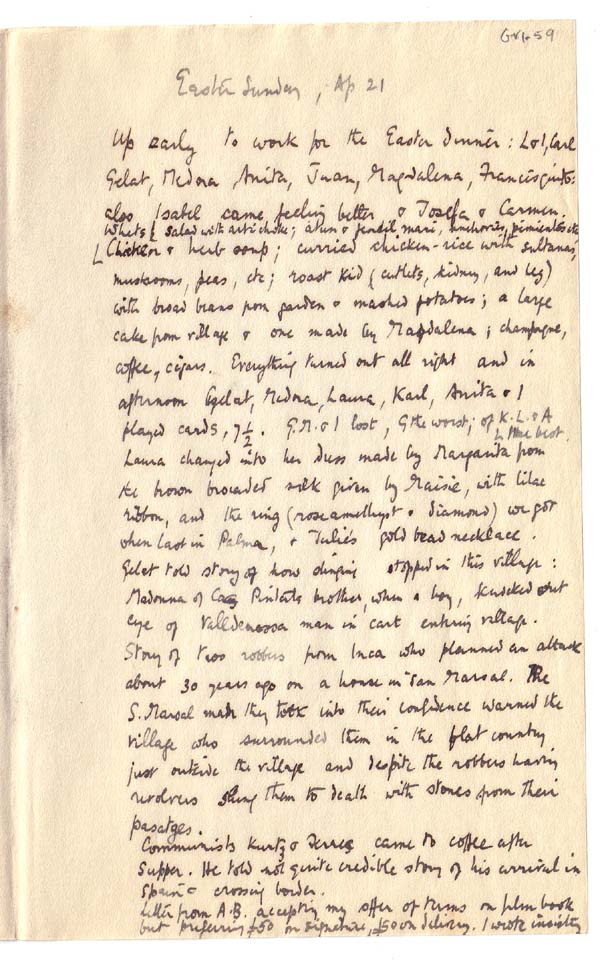 Easter Sunday, Ap 21
Up early to work for the Easter dinner: L & I, Carl
Gelat, Medora, Anita, Juan, Magdalena, Francisquita:
also Isabel came, feeling better & Josefa & Carmen.
salad with artichoke; atun & fenoll mari, anchovies, pimientos etc
Chicken & herb soup; curried chicken-rice with sultanas,
mushrooms, peas, etc; roast kid (cutlets, kidney, and leg)
with broad beans from garden & mashed potatoes; a large
cake from village & one made by Magdalena; champagne,
coffee, cigars. Everything turned out all right and in
afternoon Gelat, Medora, Laura, Karl, Anita & I
played cards, 7½. G. M. & I lost, G the worst; of K. L. & A
L the best.
Laura changed into her dress made by Margarita from
the brown brocaded silk given by Maisie, with lilac
ribbon, and the ring (rose amethyst & diamond) we got
when last in Palma, & Julie's gold bead necklace.
Gelat told story of how slinging stopped in this village:
Madonna of Brother, when a boy, knocked out
eye of Valldemossa man in cart entering village.
Story of two robbers from Inca who planned an attack
about 30 years ago on a house in San Marsal. The
S. Marsal man they took into their confidence warned the
village who surrounded them in the flat country
just outside the village and despite the robbers having
revolvers slung them to death with stones from their
passatges.
Communists Kurtz & came to coffee after
supper. He told not quite credible story of his arrival in
Spain & crossing border.
Letter from A.B. accepting my offer of terms on film book
but preferring £50 on signature, £50 on delivery. I wrote insisting